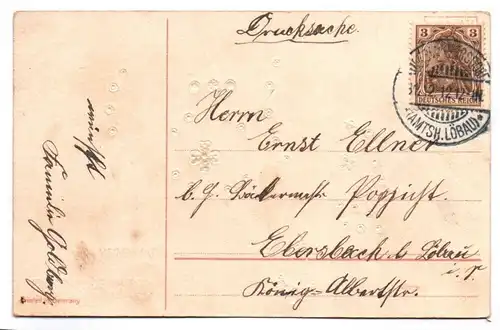 Drucksache.
3 3
DEUTSCHES REICH
(AMTSH. LÖBAU)
Herrn
Ernst Ellner
b. H. Bäckermstr Poppicht
Ebersbach b Löbau
i. S.
König-Albertstr.
wünscht
Familie